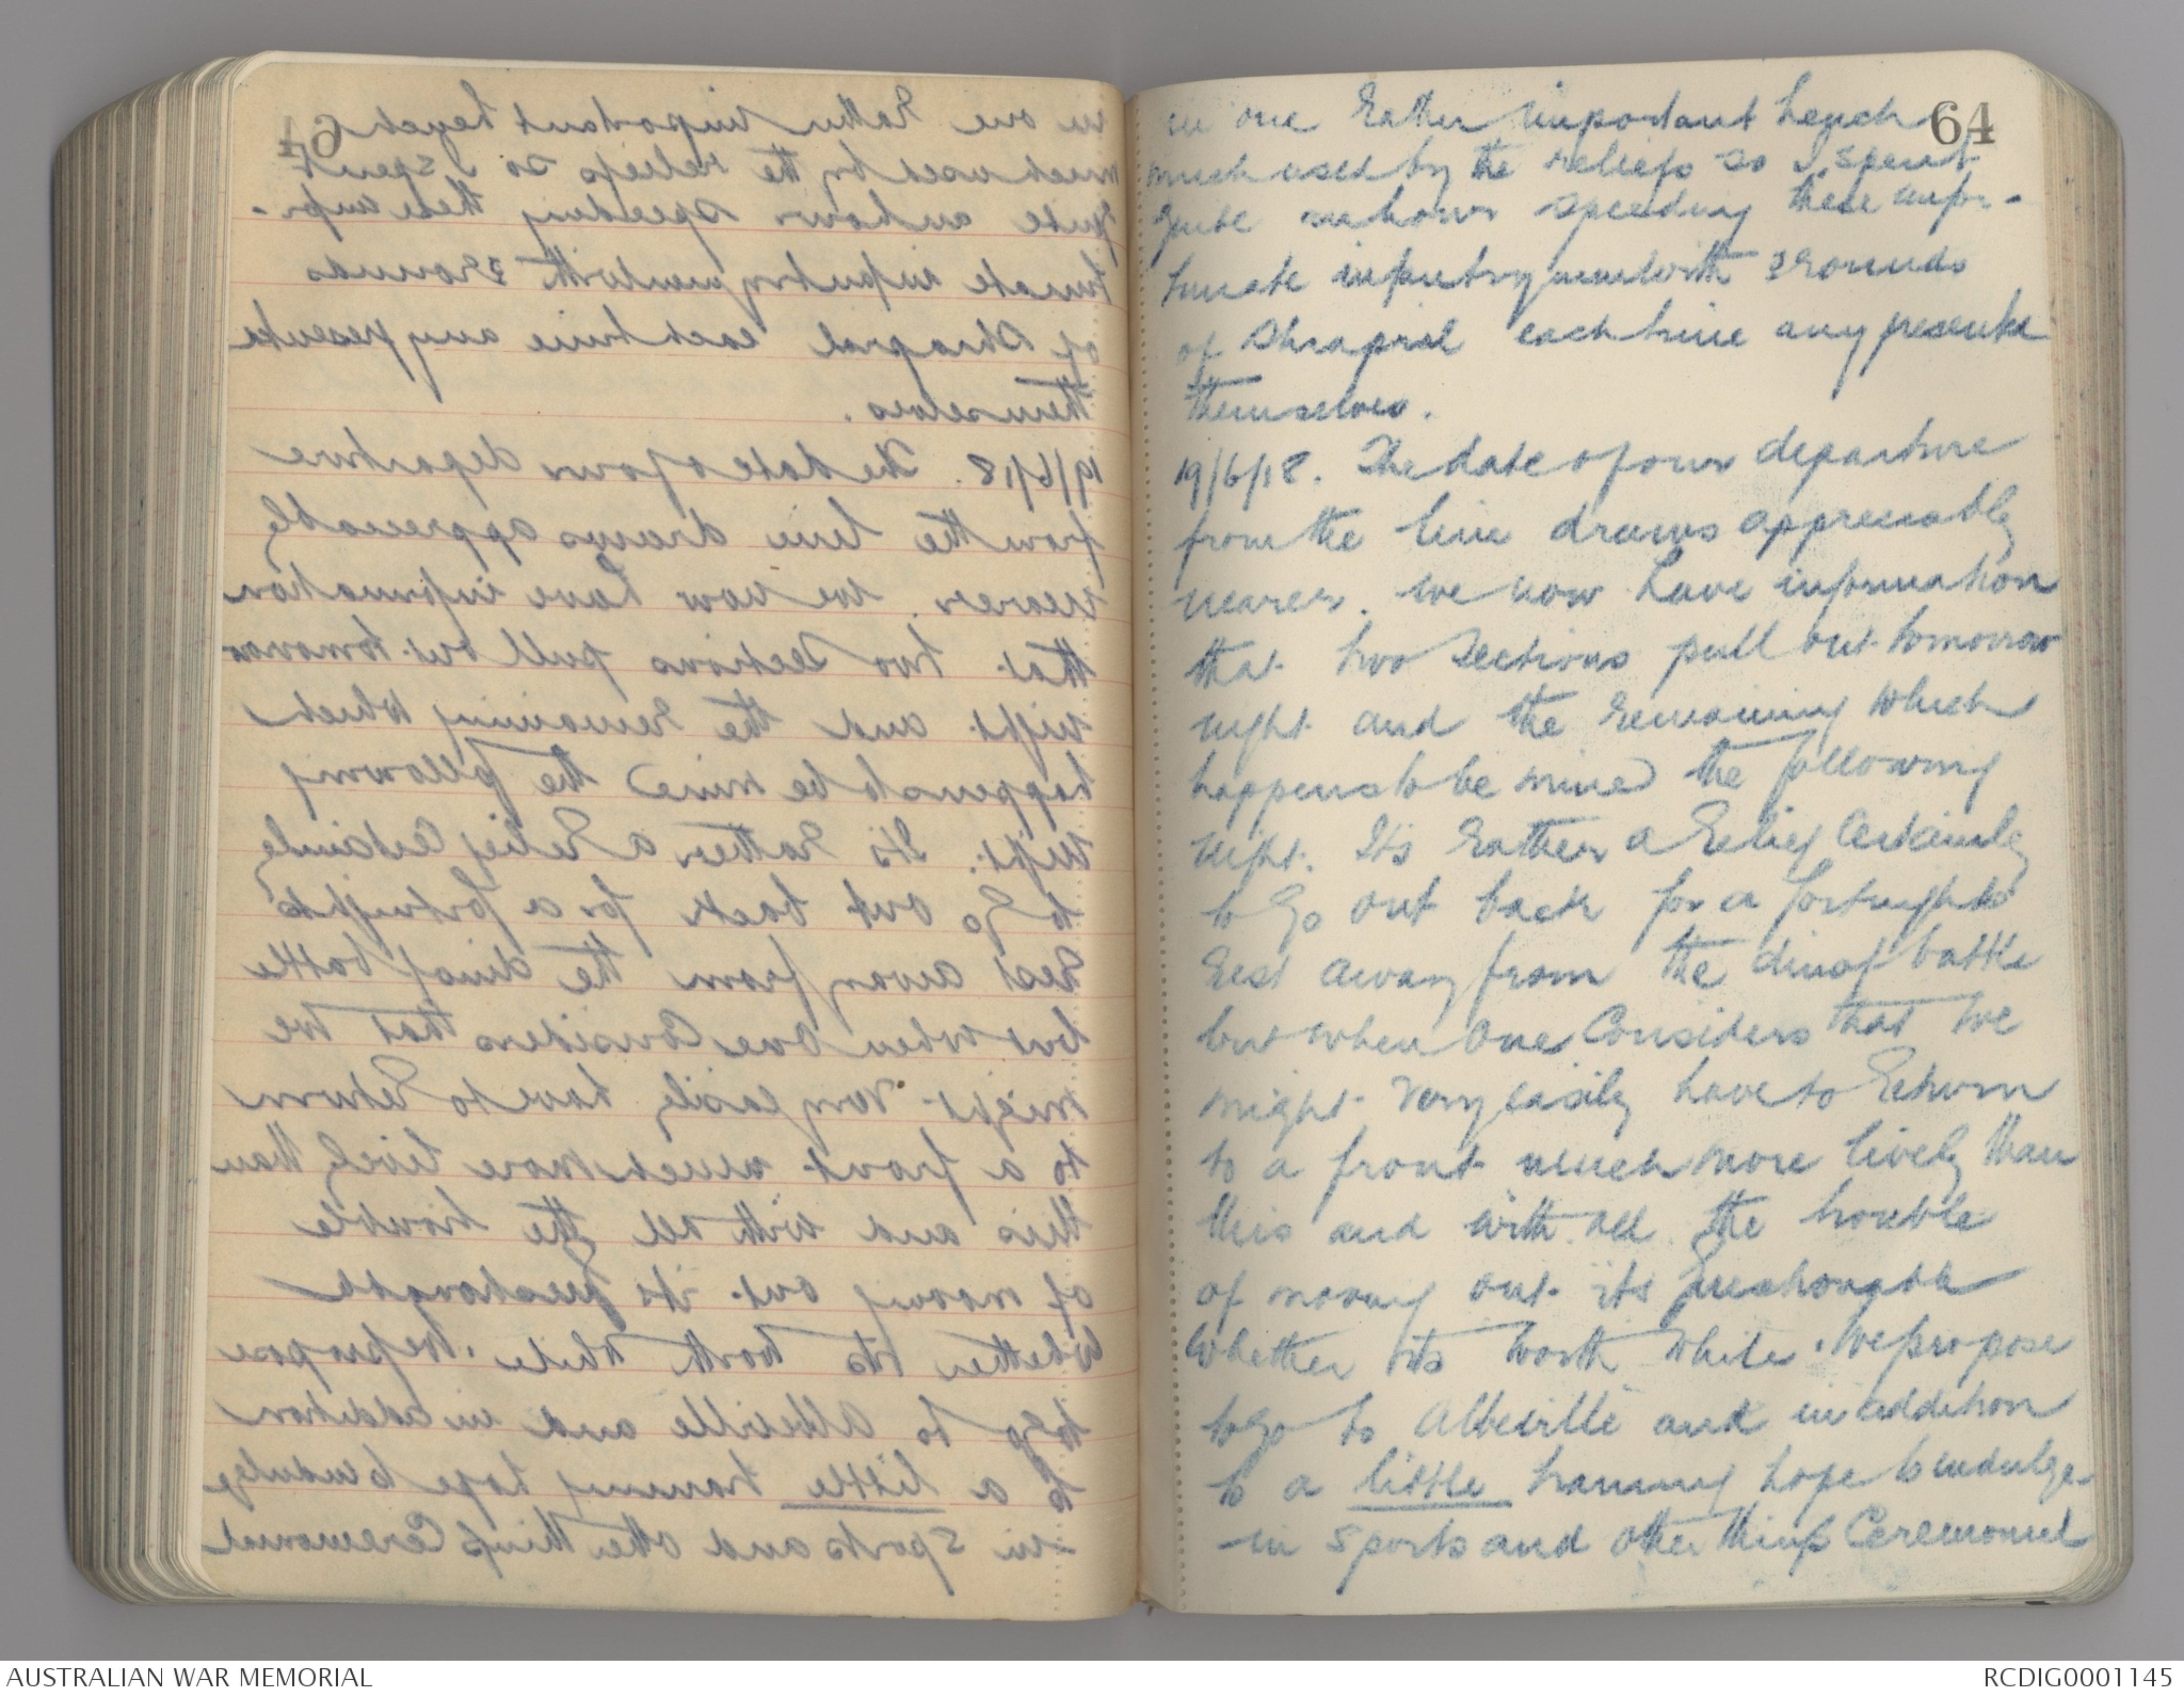 64
in one rather important trench
much used by the reliefs so I spent
quite an hour speeding these unfor-
tunate infantrymen with 3 rounds
of Shrapnel each time any presented
themselves.
19/6/18. The date of our departure
from the line draws appreciably
nearer. We now have information
that two Sections pull out tomorrow
night and the remaining which
happens to be mine the following
night. Its rather a relief certainly
to go out back for a fortnights
rest away from the din of battle
but when one Considers that we
might very easily have to return
to a front much more lively than
this and with all the trouble
of moving out its questionable
whether its worth while. We propose
to go to Abbeville and in addition
to a little training hope to indulge
in sports and other things Ceremonial
AUSTRALIAN WAR MEMORIAL
RCDIG0001145